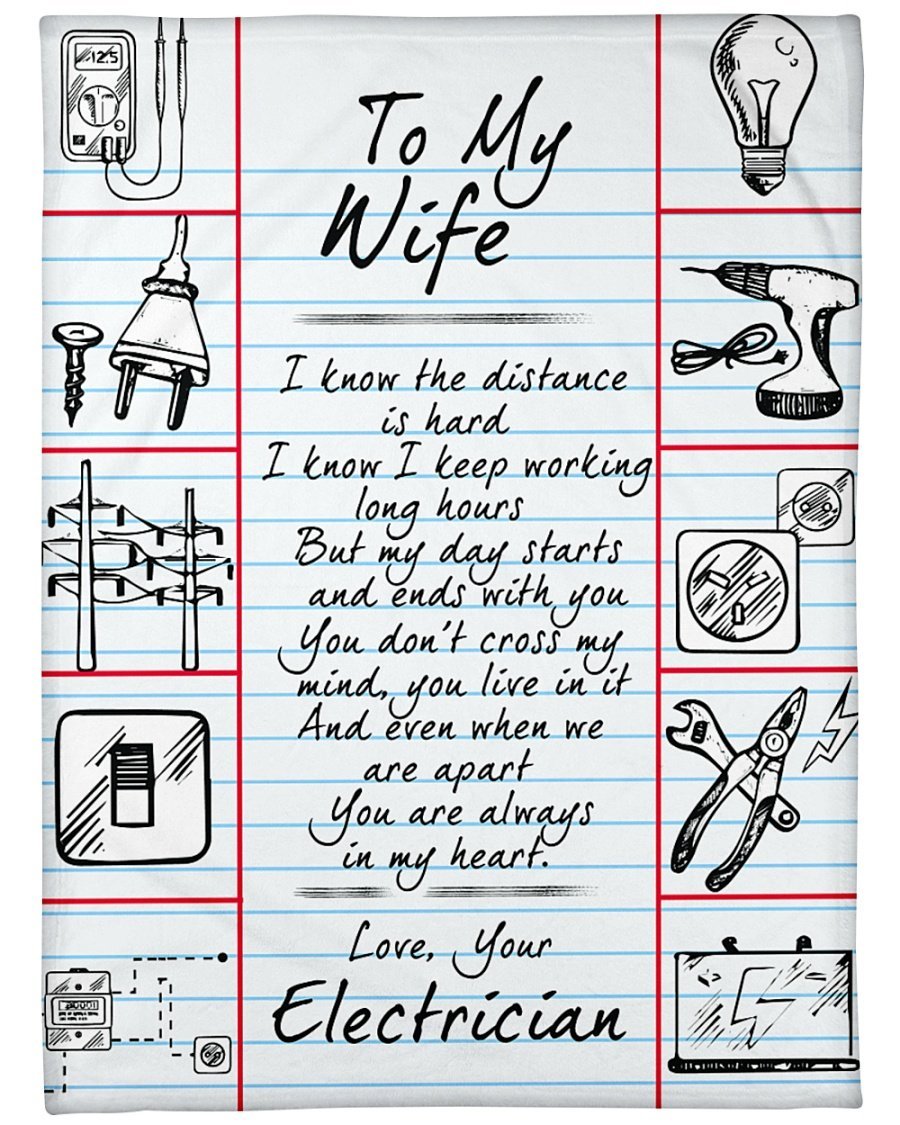 12.5
To My
Wife
I know the distance
is hard
I know I keep working
long hours
But my day starts
and ends with you
You don't cross my
mind, you live in it
And even when we
are apart
You are always
in my heart.
Love, Your
Electrician